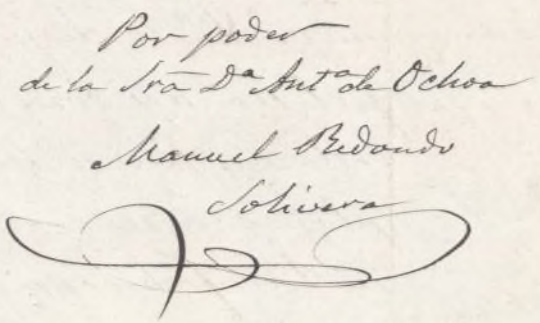 Por poder
de la Sra Dª Antª de Ochoa
Manuel Redondo
Solivera